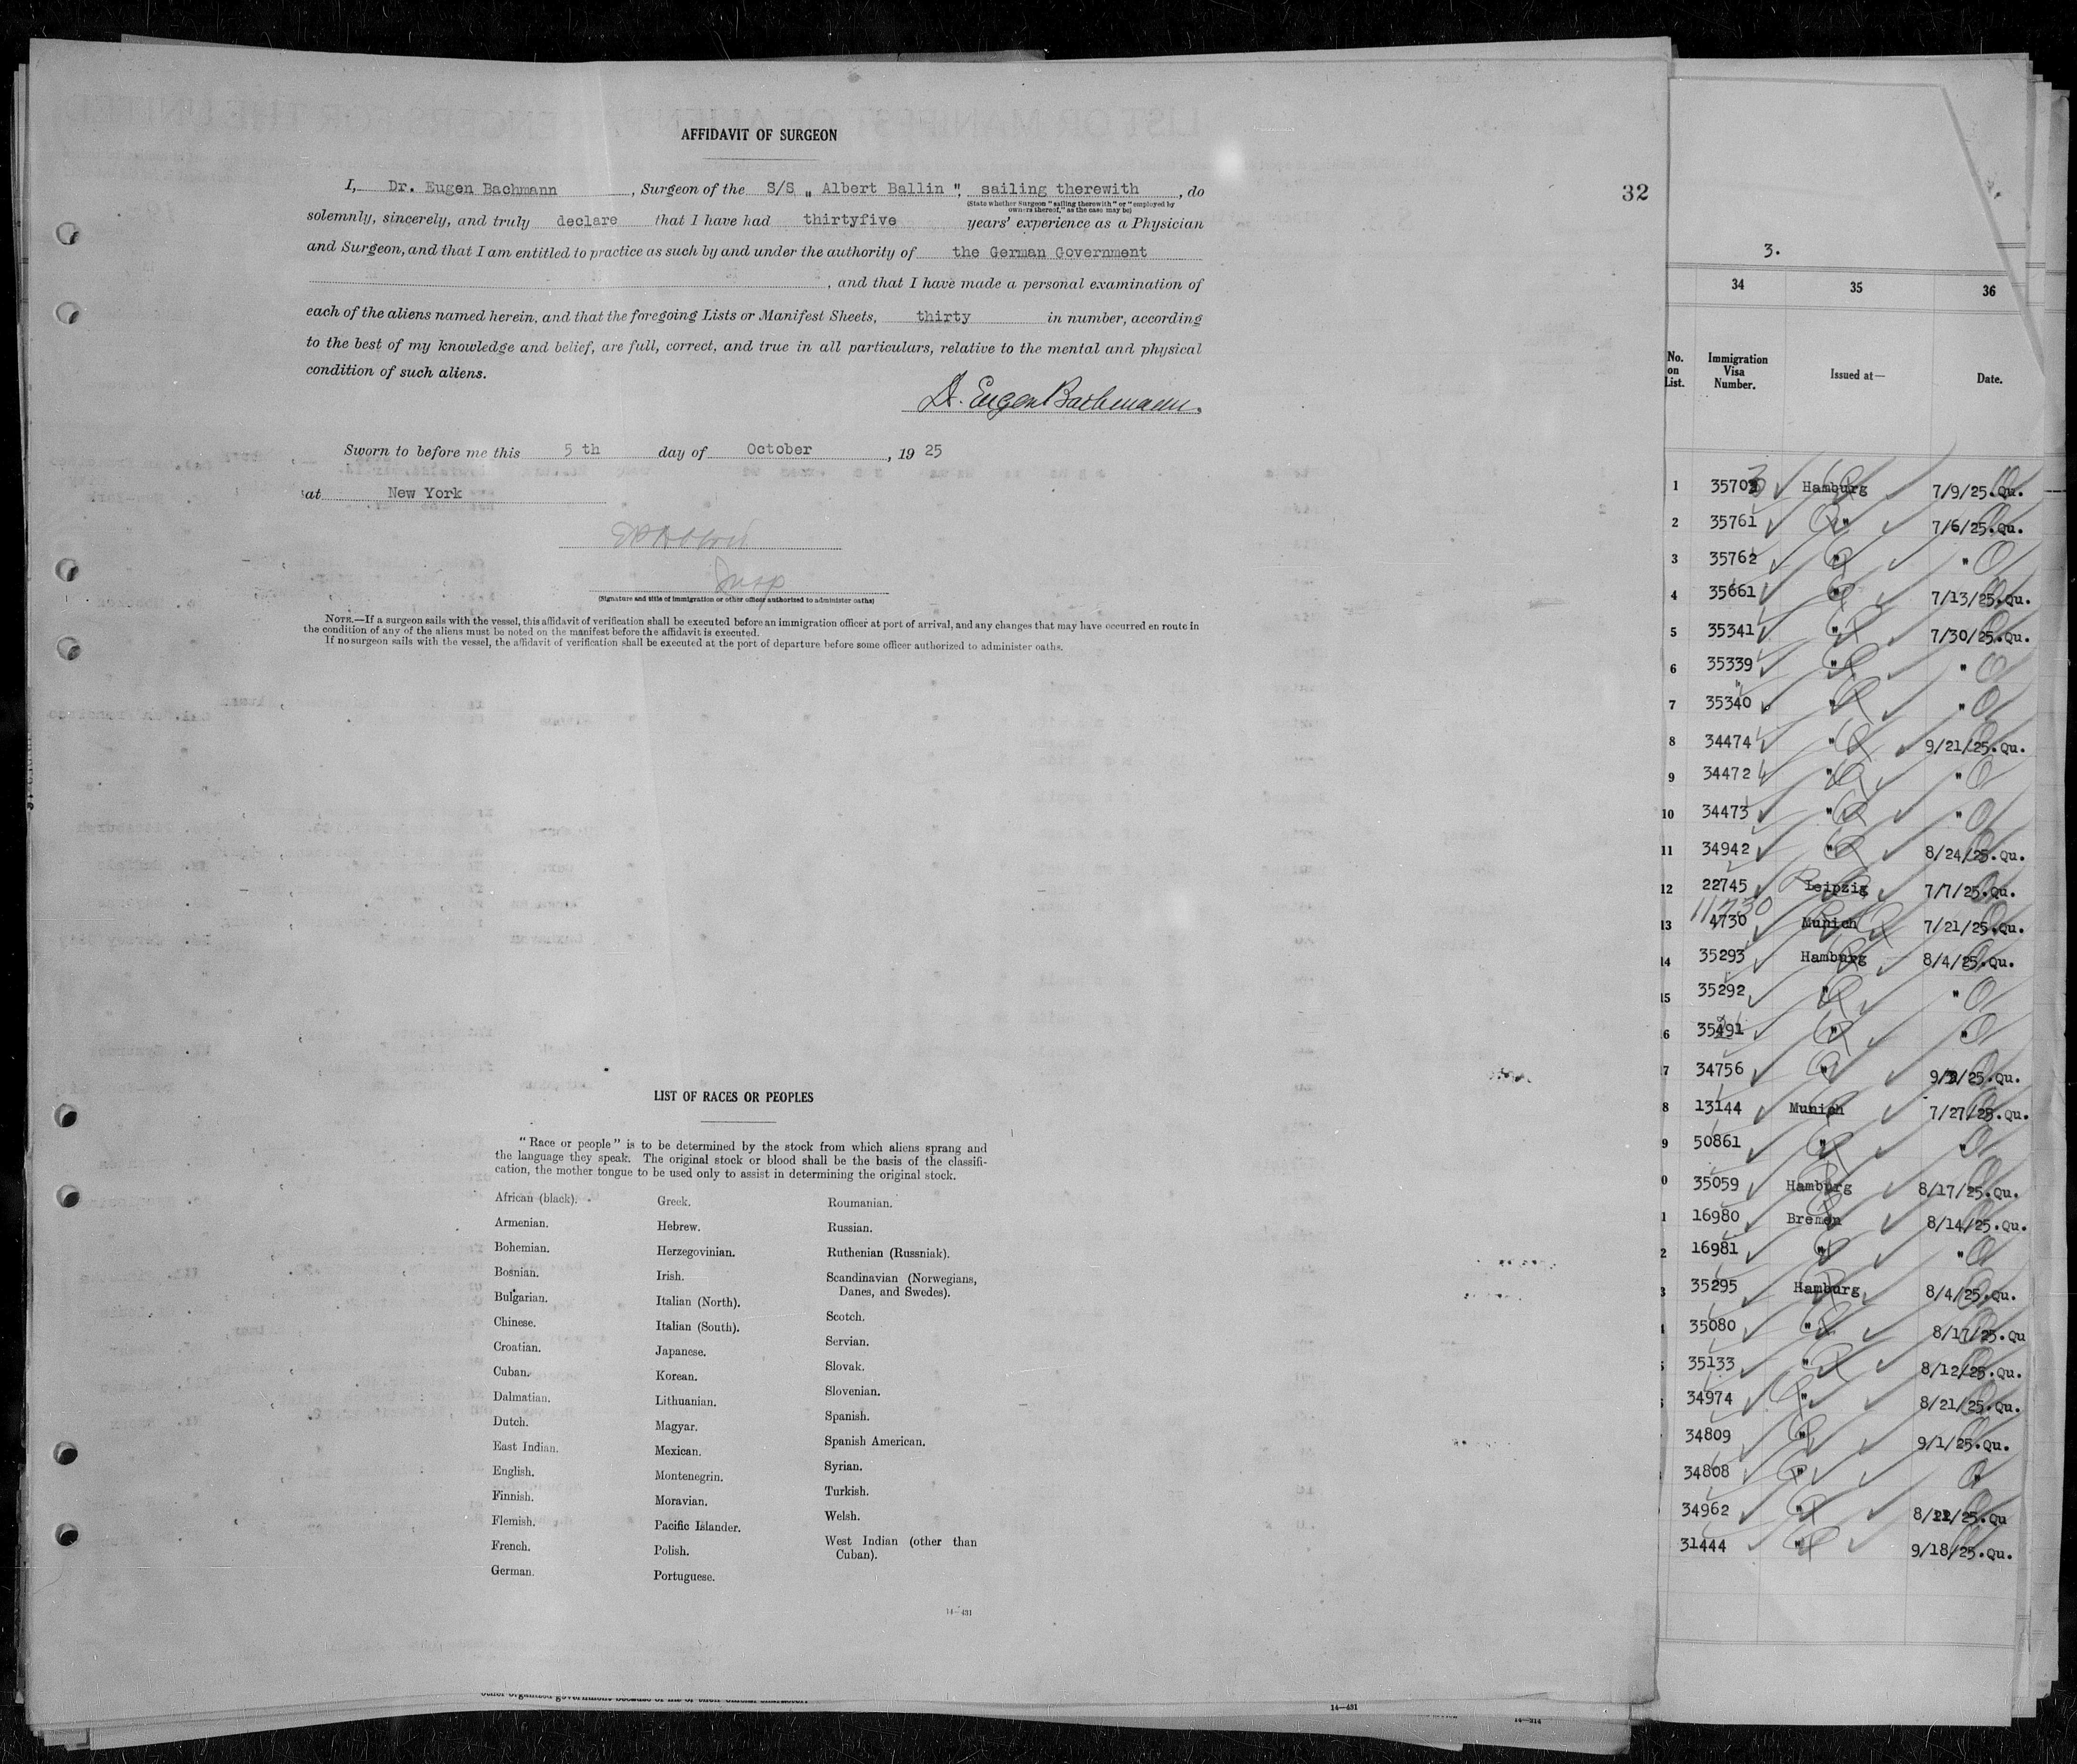 AFFIDAVIT OF SURGEON
I, Dr. Eugen Bachmann, Surgeon of the S/S „ Albert Ballin ", sailing therewith, do
(State whether Surgeon "sailing therewith" or "employed by
owners thereof," as the case may be)
solemnly, sincerely, and truly declare that I have had thirtyfive years' experience as a Physician
and Surgeon, and that I am entitled to practice as such by and under the authority of the German Government
, and that I have made a personal examination of
each of the aliens named herein, and that the foregoing Lists or Manifest Sheets, thirty in number, according
to the best of my knowledge and belief, are full, correct, and true in all particulars, relative to the mental and physical
condition of such aliens.
Dr. Eugen Bachmann.
Sworn to before me this 5 th day of October, 19 25
at New York
Insp
(Signature and title of immigration or other officer authorized to administer oaths)
NOTE.—If a surgeon sails with the vessel, this affidavit of verification shall be executed before an immigration officer at port of arrival, and any changes that may have occurred en route in
the condition of any of the aliens must be noted on the manifest before the affidavit is executed.
If no surgeon sails with the vessel, the affidavit of verification shall be executed at the port of departure before some officer authorized to administer oaths.
LIST OF RACES OR PEOPLES
"Race or people" is to be determined by the stock from which aliens sprang and
the language they speak. The original stock or blood shall be the basis of the classifi-
cation, the mother tongue to be used only to assist in determining the original stock.
African (black).
Armenian.
Bohemian.
Bosnian.
Bulgarian.
Chinese.
Croatian.
Cuban.
Dalmatian.
Dutch.
East Indian.
English.
Finnish.
Flemish.
French.
German.
Greek.
Hebrew.
Herzegovinian.
Irish.
Italian (North).
Italian (South).
Japanese.
Korean.
Lithuanian.
Magyar.
Mexican.
Montenegrin.
Moravian.
Pacific Islander.
Polish.
Portuguese.
Roumanian.
Russian.
Ruthenian (Russniak).
Scandinavian (Norwegians,
Danes, and Swedes).
Scotch.
Servian.
Slovak.
Slovenian.
Spanish.
Spanish American.
Syrian.
Turkish.
Welsh.
West Indian (other than
Cuban).
14—431
14—431
32
3.
34 35 36
No. on List. Immigration Visa Number. Issued at— Date.
1 35703 Hamburg 7/9/25.Qu.
2 35761 " 7/6/25.Qu.
3 35762 " "
4 35661 " 7/13/25.Qu.
5 35341 " 7/30/25.Qu.
6 35339 " "
7 35340 " "
8 34474 " 9/21/25.Qu.
9 34472 " "
10 34473 " "
11 34942 " 8/24/25.Qu.
12 22745 Leipzig 7/7/25.Qu.
11730
13 4730 Munich 7/21/25.Qu.
14 35293 Hamburg 8/4/25.Qu.
15 35292 " "
6 35491 " "
7 34756 " /25.Qu.
8 13144 Munich 7/27/25.Qu.
9 50861 " "
0 35059 Hamburg 8/17/25.Qu.
1 16980 Bremen 8/14/25.Qu.
2 16981 " "
3 35295 Hamburg 8/4/25.Qu.
35080 " 8/17/25.Qu
35133 " 8/12/25.Qu.
34974 " 8/21/25.Qu.
34809 " 9/1/25.Qu.
34808 " "
34962 " 8/22/25.Qu
31444 " 9/18/25.Qu.